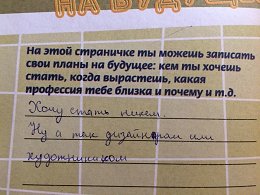 НА БУДУЩЕЕ
На этой страничке ты можешь записать
свои планы на будущее: кем ты хочешь
стать, когда вырастешь, какая
профессия тебе близка и почему и т.д.
Хочу стать никем.
Ну а так дизайнером или
художником